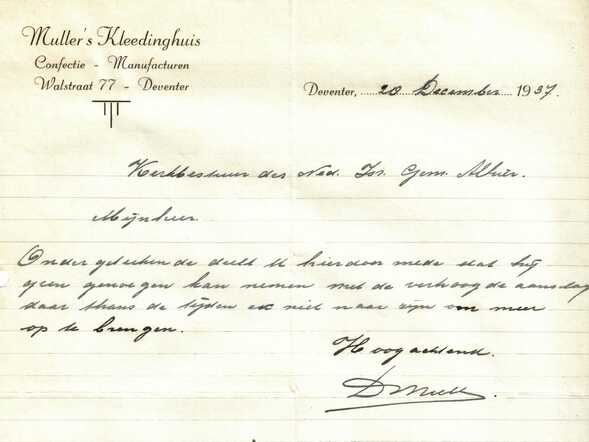 Muller's Kleedinghuis
Confectie - Manufacturen
Walstraat 77 - Deventer
Deventer, 20 December 1937.
Kerkbestuur der Ned. Isr. Gem. Alhier.
Mijnheer.
Ondergeteekende deelt U hierdoor mede dat hij
geen genoegen kan nemen met de verhoogde aanslag
daar thans de tijden er niet naar zijn om meer
op te brengen.
Hoogachtend.
D Mull